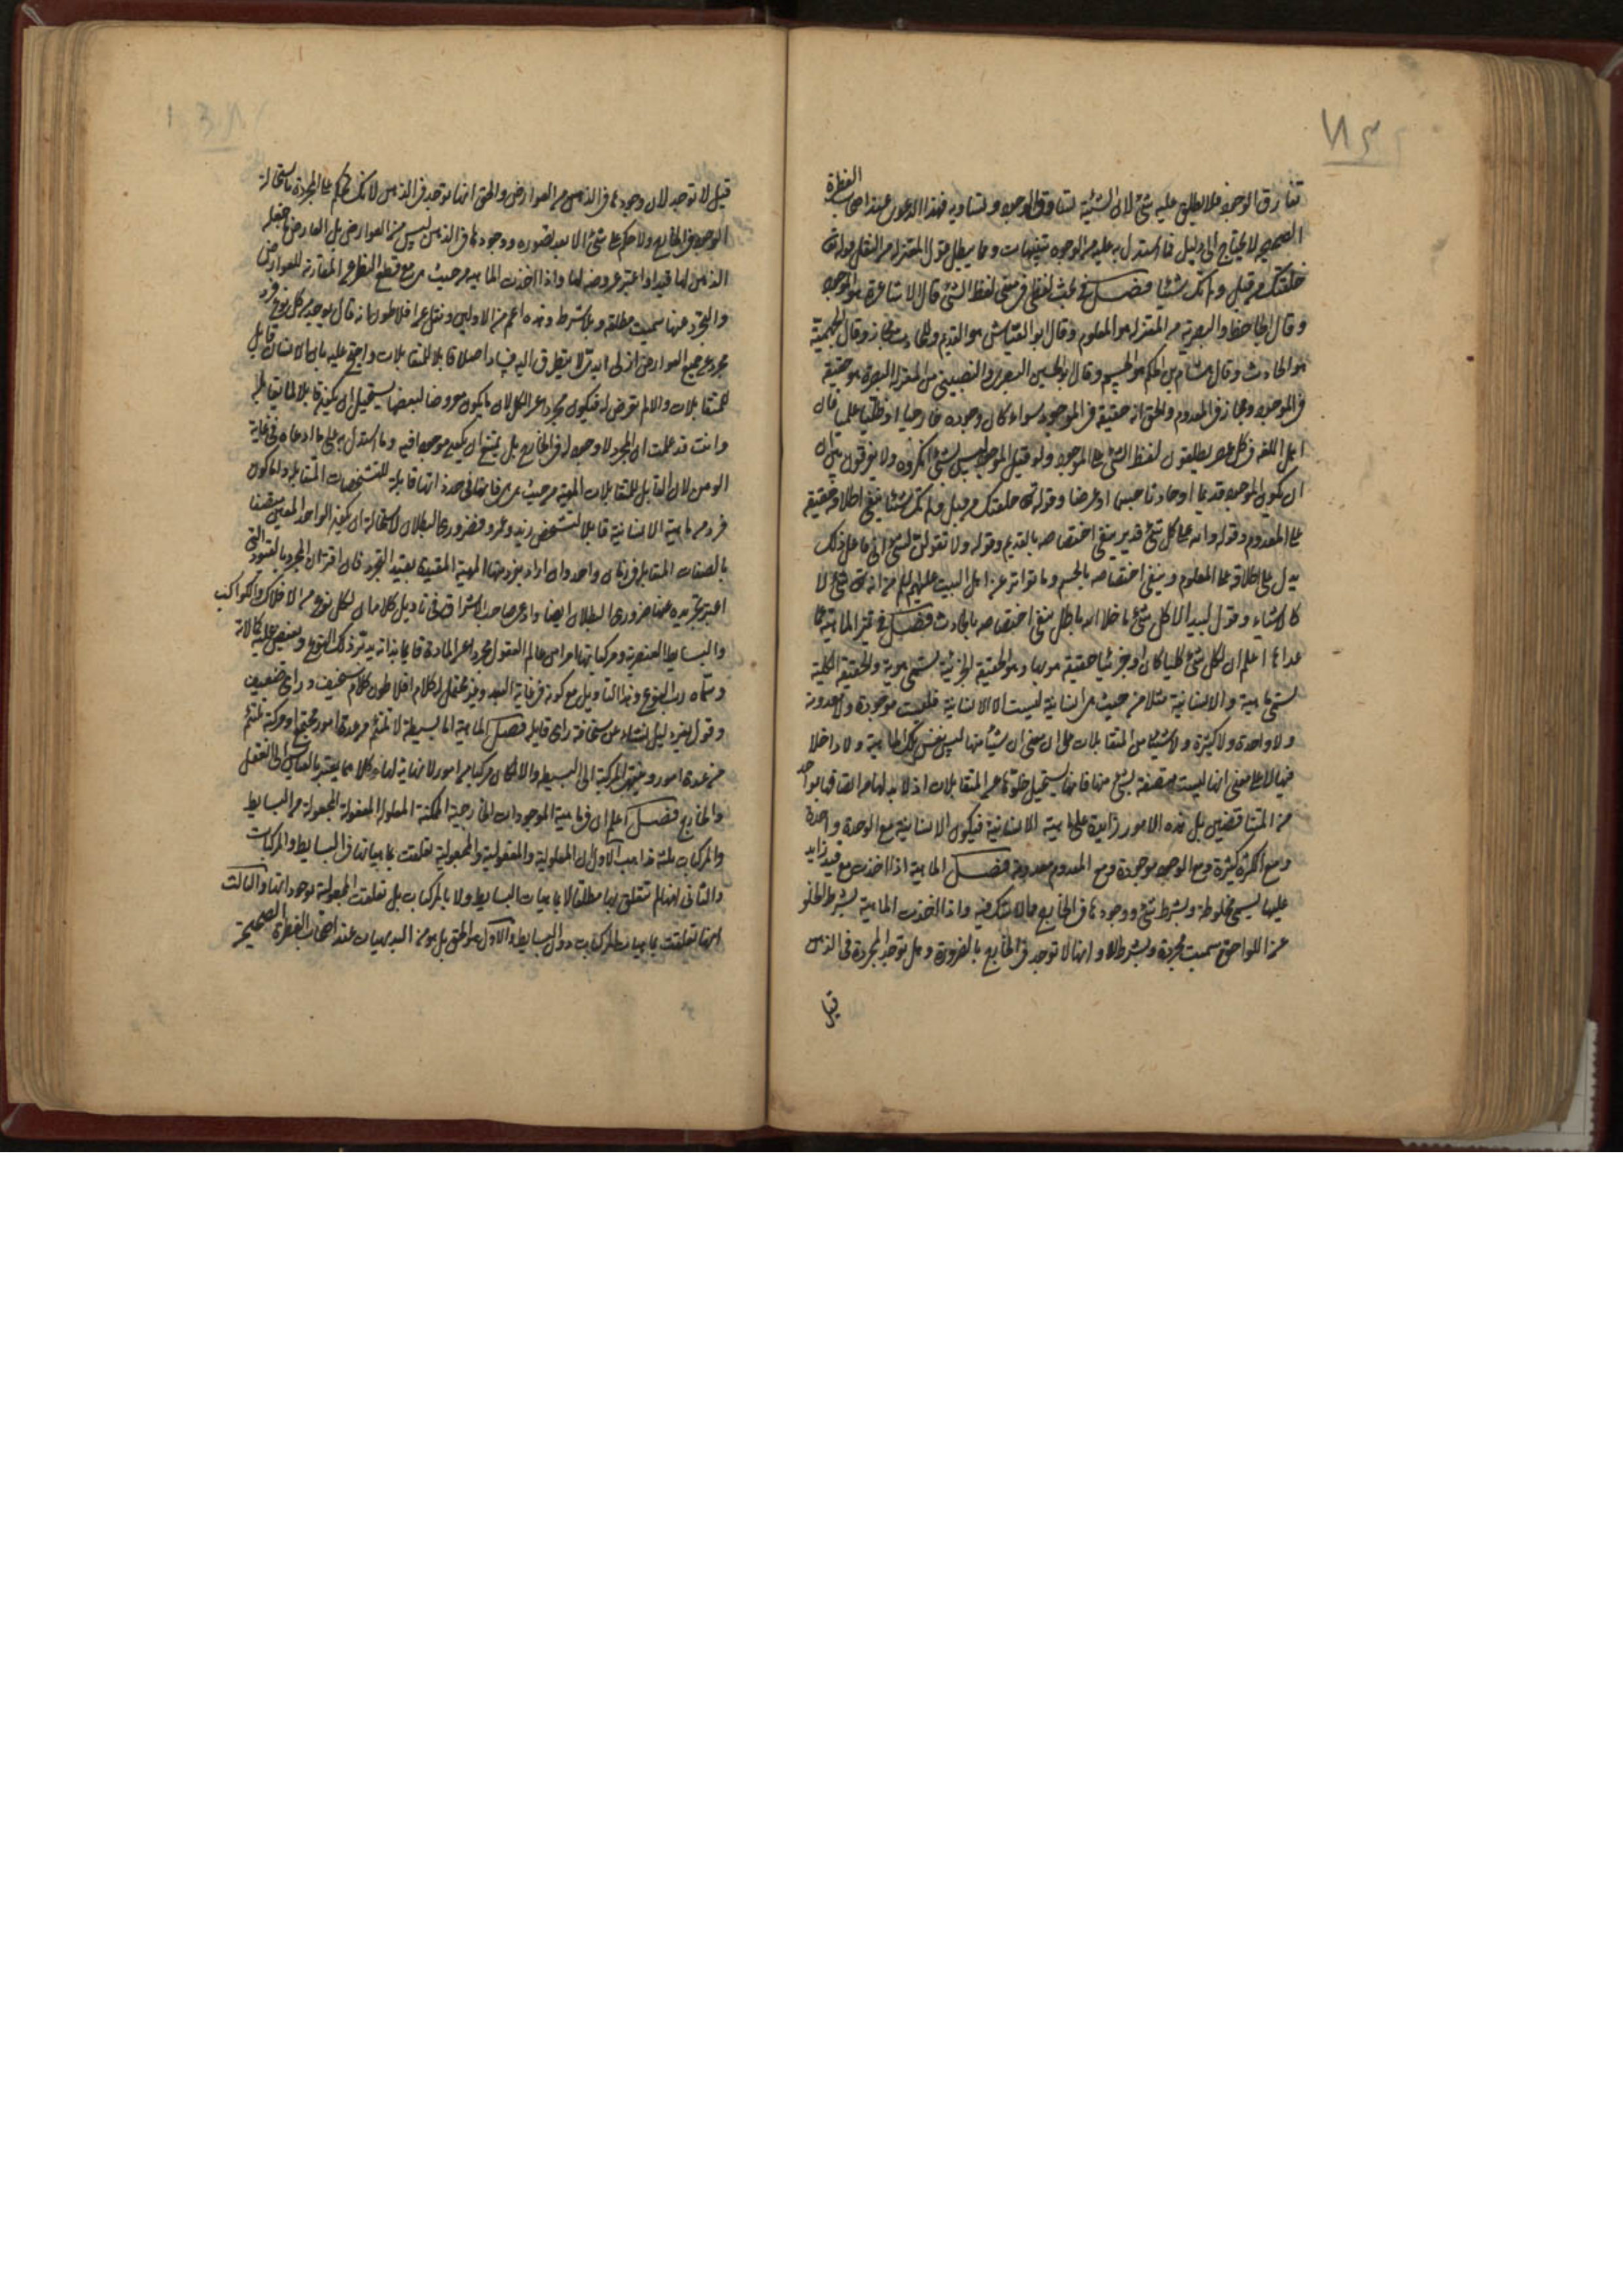 تفارق الوجود فلا يطلق عليه شئ لان الشيئية تساوق الوجود وتساويه فهذا الدعوى عند اصحاب الفطرة
الصحيحة لا يحتاج الى دليل فما استدل به عليه من الوجوه تنبيهات ومما يبطل قول المعتزلة من النقل قوله تعالى
خلقتك من قبل ولم تك شيئا فصل في بحث لفظي في معنى لفظ الشئ قال الاشاعرة هو الموجود
وقال الجاحظ والبصرية من المعتزلة هو المعلوم وقال ابو العباس هو القديم وللحادث مجاز وقال الجهمية
هو الحادث وقال هشام بن الحكم هو الجسم وقال ابو الحسين البصري والنصيبيني من المعتزلة البصرة هو حقيقة
في الموجود ومجاز في المعدوم والحق انه حقيقة في الموجود سواء كان وجوده خارجيا او ظليا علميا فان
اهل اللغة في كل عصر يطلقون لفظ الشئ على الموجود ولو قيل الموجود ليس بشئ انكروه ولا يفرقون بين ان
ان يكون الموجود قديما او حادثا جسما او عرضا وقوله تعالى خلقتك من قبل ولم تك شيئا ينفى اطلاقه حقيقة
على المعدوم وقوله والله على كل شئ قدير ينفى اختصاصه بالقديم وقوله ولا تقولن لشئ انى فاعل ذلك
يدل على اطلاقه على المعلوم وينفى اختصاصه بالجسم وما تواتر عن اهل البيت عليهم السلم من انه تعالى شئ لا
كالاشياء وقول لبيد الا كل شئ ما خلا الله باطل ينفى اختصاصه بالحادث فصل في تميز الماهية عما
عداها اعلم ان لكل شئ كليا كان او جزئيا حقيقة هو بها هو والحقيقة الجزئية تسمى هوية والحقيقة الكلية
تسمى ماهية والانسانية مثلا من حيث هي انسانية ليست الا الانسانية فليست موجودة ولا معدومة
ولا واحدة ولا كثيرة ولا شيئا من المتقابلات على ان معنى ان شيئا منها ليس نفس تلك الماهية ولا داخلا
فيها لا على معنى انها ليست متصفة بشئ منها فانها يستحيل خلوها عن المتقابلات اذ لا بد لها من اتصافها بواحد
من المتناقضين بل هذه الامور زايدة على ماهية الانسانية فيكون الانسانية مع الوحدة واحدة
ومع الكثرة كثيرة ومع الوجود موجودة ومع العدم معدومة فصل الماهية اذا اخذت مع قيد زايد
عليها يسمى مخلوطة وبشرط شئ ووجودها في الخارج مما لا شك فيه واذا اخذت الماهية بشرط الخلو
عن اللواحق سميت مجردة وبشرط لا وانها لا توجد في الخارج بالضرورة وهل توجد المجردة في الذهن
قيل
قيل لا توجد لان وجودها في الذهن من العوارض والحق انها توجد في الذهن لانك تحكم على المجردة باستحالة
الوجود في الخارج ولا حكم على شئ الا بعد تصوره ووجودها في الذهن ليس من العوارض بل العارض ما جعله
الذهن لها قيدا واعتبر عروضه لها واذا اخذت الماهية من حيث هي مع قطع النظر عن المقارنة للعوارض
والتجرد عنها سميت مطلقة وبلا شرط وهذه اعم من الاوليين ونقل عن افلاطون انه قال يوجد من كل نوع فرد
مجرد عن جميع العوارض ازلي ابدي لا يتطرق اليه فساد اصلا قابلا للمتقابلات واحتج عليه بان الانسان قابل
للمتقابلات والا لم تعرض له فيكون مجردا عن الكل لان ما يكون معروضا لبعضها يستحيل ان يكون قابلا لما يقابله
وانت قد علمت ان المجرد لا وجود له في الخارج بل يمتنع ان يكون موجودا فيه وما استدل به على ما ادعاه في غاية
الوهن لان القابل للمتقابلات الماهية من حيث هي فانها في حد ذاتها قابلة للتشخصات المتقابلة واما كون
فرد من ماهية الانسانية قابلا لتشخص زيد وعمرو فضروري البطلان لاستحالة ان يكون الواحد المعين متصفا
بالصفات المتقابلة في زمان واحد وان اراد بفرد منها الماهية المقيدة بقيد التجرد فان اقتران المجرد بالقيود التى
اعتبر تجريده عنها ضروري البطلان ايضا وادعى صاحب الاشراق في تاويل كلامه ان لكل نوع من الافلاك والكواكب
والبسايط العنصرية ومركباتها امرا من عالم العقول مجردا عن المادة قايما بذاته يدبر ذلك النوع ويفيض عليه كمالاته
وسماه رب النوع وهذا التاويل مع كونه في غاية البعد وغير محتمل لكلام افلاطون كلام سخيف وراى ضعيف
وقول بغير دليل نشاء من سخافة راى قايله فصل الماهية اما بسيطة لا تلتئم من عدة امور مجتمعة او مركبة تلتئم
من عدة امور وينتهى المركبة الى البسيط والا لكان مركبا من امور لا نهاية لها وكلاهما يعتبر بالقياس الى العقل
والخارج فصل اعلم ان في ماهية الموجودات الخارجية الممكنة المعلولة المفعولة المجعولة من البسايط
والمركبات ثلثة مذاهب الاول ان المعلولية والمفعولية والمجعولية تعلقت بماهياتها في البسايط والمركبات
والثانى انها لم تتعلق بها مطلقا لا بماهيات البسايط ولا بالمركبات بل تعلقت المجعولية بوجوداتها والثالث
انها تعلقت بماهيات المركبات دون البسايط والاول هو الحق بل هو من البديهيات عند اصحاب الفطرة الصحيحة